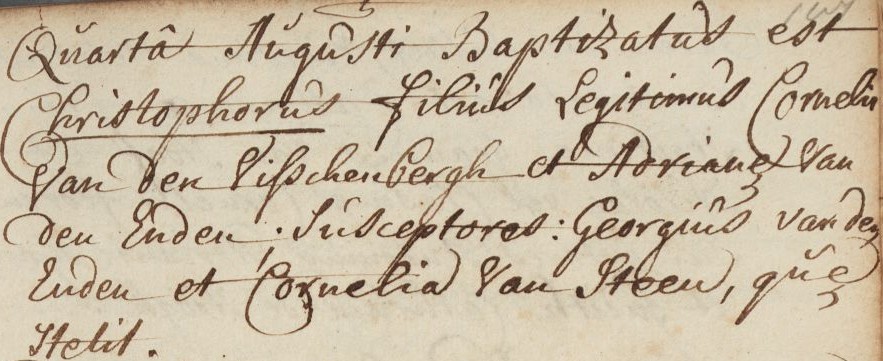 Quartâ Augusti Baptizatus est
Christophorus filius Legitimus Cornelii
Van den Vißchenbergh et Adrianę Van
den Enden. Susceptores: Georgius van den
Enden et Cornelia Van Steen, quę
stetit.